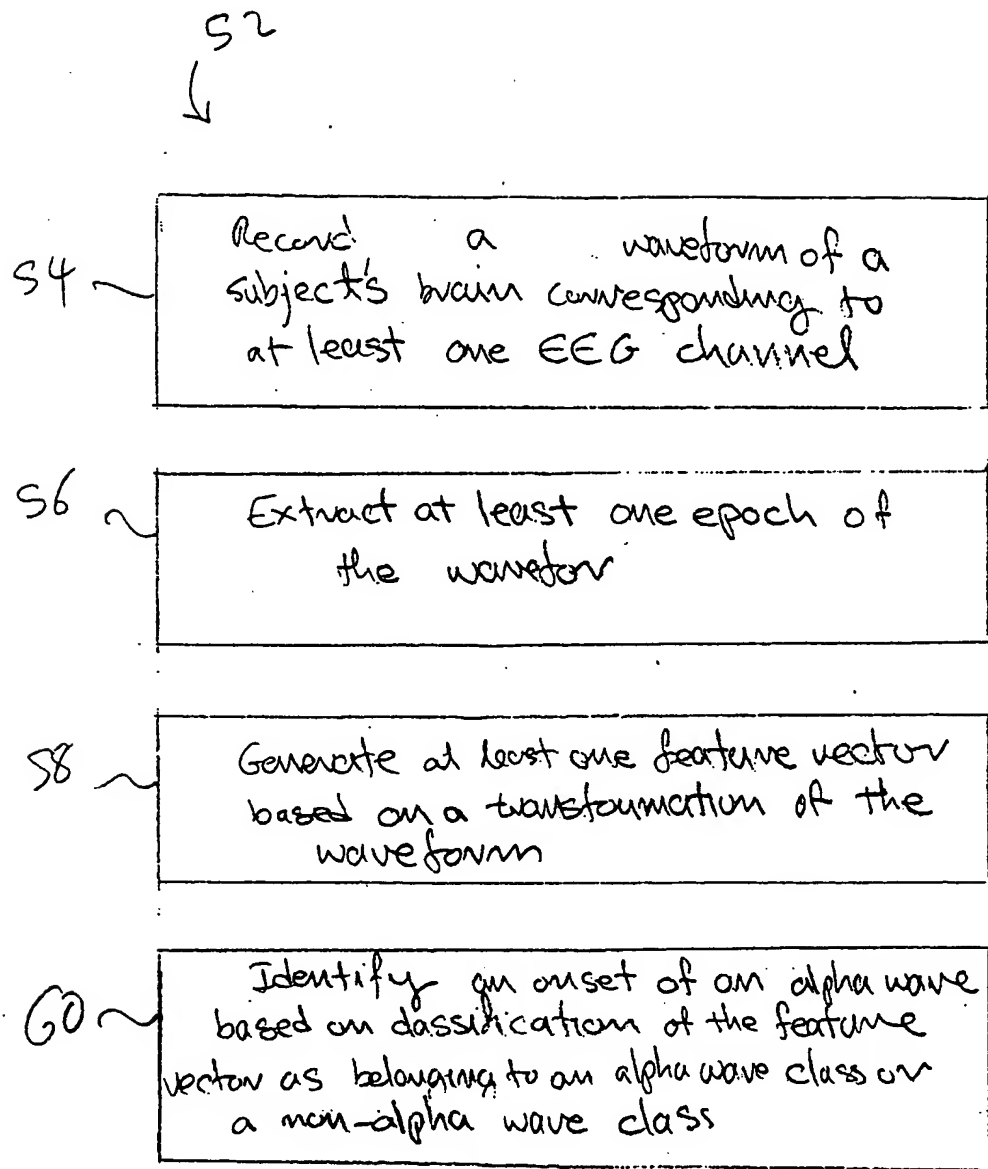 52
54
Record a waveform of a
subject's brain corresponding to
at least one EEG channel
56
Extract at least one epoch of
the wavefor
58
Generate at least one feature vector
based on a transformation of the
waveform
60
Identify an onset of an alpha wave
based on classification of the feature
vector as belonging to an alpha wave class or
a non-alpha wave class